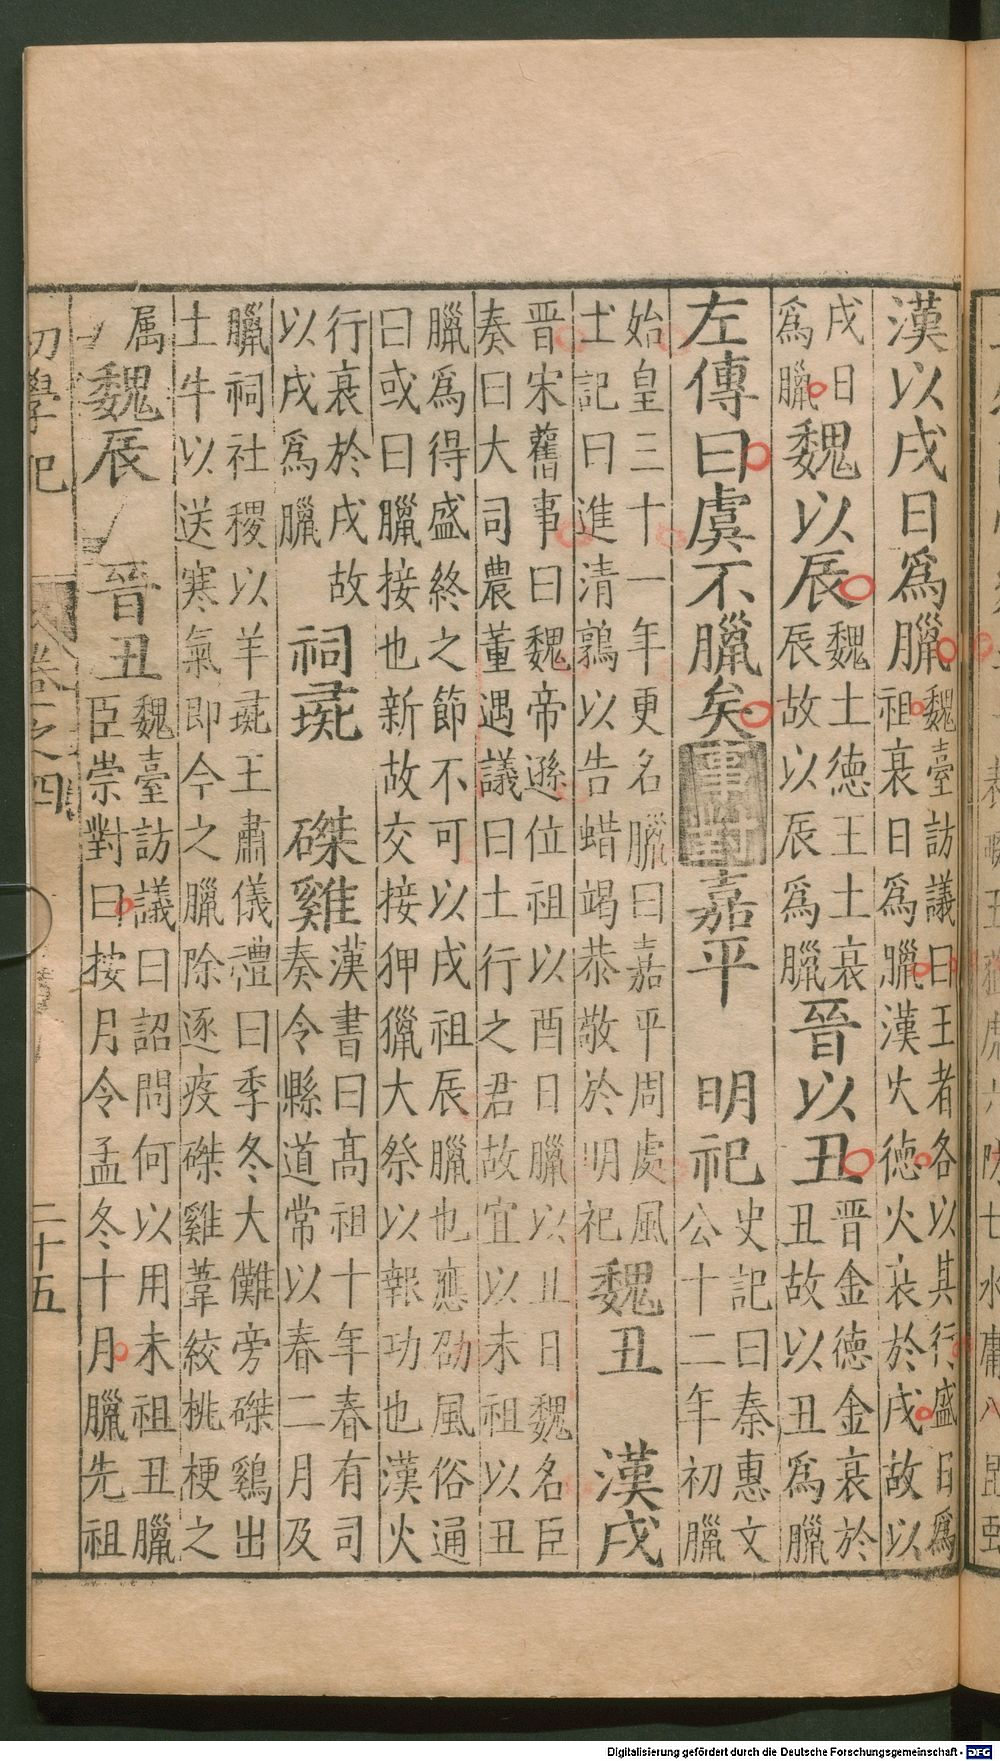 漢以戌日爲臘魏臺訪議曰王者各以其行盛日爲
祖衰日爲臘漢火徳火衰於戌故以
戌日
爲臘魏以辰魏土徳王土衰
辰故以辰爲臘晉以丑晋金德金衰於
丑故以丑爲臘
左傳曰虞不臘矣事對嘉平 明祀史記曰秦惠文
公十二年初臘
始皇三十一年更名臘曰嘉平周處風
土記曰進清鶉以告蜡竭恭敬於明祀魏丑 漢戌
晉宋舊事曰魏帝遜位祖以酉日臘以丑日魏名臣
奏曰大司農董遇議曰土行之君故宜以未祖以丑
臘爲得盛終之節不可以戌祖辰臘也應劭風俗通
曰或曰臘接也新故交接狎獵大祭以報功也漢火
行衰於戌故
以戌爲臘祠㼁 磔雞漢書曰髙祖十年春有司
奏令縣道常以春二月及
臘祠社稷以羊㼁王肅儀禮曰季冬大儺旁磔鷄出
土牛以送寒氣即今之臘除逐疫磔雞葦絞桃梗之
属魏辰 晉丑魏臺訪議曰詔問何以用未祖丑臘
臣崇對曰按月令孟冬十月臘先祖
初學記 卷之四 二十五
Digitalisierung gefördert durch die Deutsche Forschungsgemeinschaft - DFG